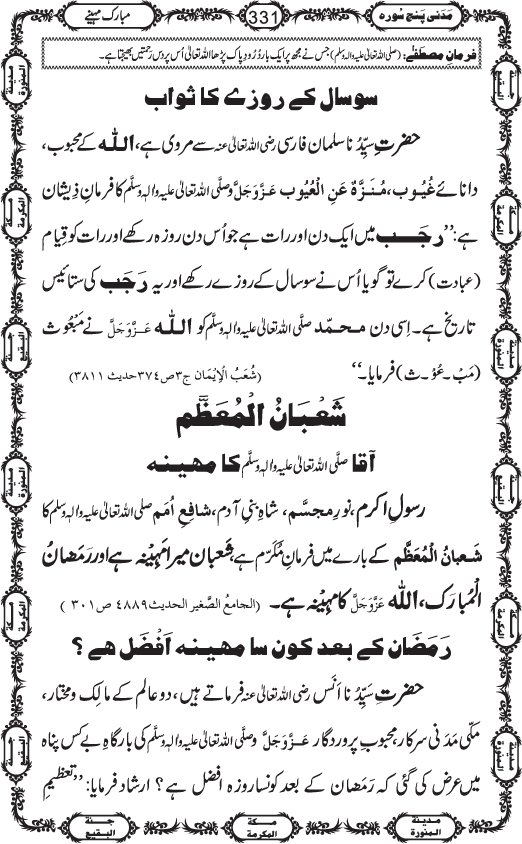 مَدَنی پنج سُورہ
331
مبارک مہینے
فرمانِ مصطفٰے: (صلی اللہ تعالیٰ علیہ والہٖ وسلّم) جس نے مجھ پر ایک بار دُرُودِ پاک پڑھا اللہ تعالیٰ اُس پر دس رحمتیں بھیجتا ہے۔
سو سال کے روزے کا ثواب
حضرتِ سیِّدُنا سلمان فارسی رضی اللہ تعالیٰ عنہ سے مروی ہے، اللہ کے محبوب،
دانائے غُیُوب، مُنَزَّہٌ عَنِ الْعُیُوب عَزَّوَجَلَّ وصلَّی اللہ تعالیٰ علیہ والہٖ وسلَّم کا فرمانِ ذِیشان
ہے: ’’رجب میں ایک دن اور رات ہے جو اُس دن روزہ رکھے اور رات کو قِیام
(عبادت) کرے تو گویا اُس نے سو سال کے روزے رکھے اور یہ رَجَب کی ستائیس
تاریخ ہے۔ اِسی دن محمّد صلَّی اللہ تعالیٰ علیہ والہٖ وسلَّم کو اللہ عَزَّوَجَلَّ نے مَبْعُوث
(مَبْ۔عُوْ۔ث) فرمایا۔‘‘ (شُعَبُ الْاِیْمَان ج۳ص۳۷۴حدیث ۳۸۱۱)
شَعْبَانُ الْمُعَظَّم
آقا صلَّی اللہ تعالیٰ علیہ والہٖ وسلَّم کا مہینہ
رسولِ اکرم، نورِ مجسَّم، شاہِ بنی آدم، شافِعِ اُمَم صلی اللہ تعالیٰ علیہ والہٖ وسلَّم کا
شَعبانُ الْمُعَظَّم کے بارے میں فرمانِ مُکرَّم ہے، شعبان میرا مہینہ ہے اور رَمَضانُ
الْمُبارَک، اللہ عَزَّوَجَلَّ کا مہینہ ہے۔ (الجامعُ الصَّغیر الحدیث۴۸۸۹ ص۳۰۱ )
رَمَضَان کے بعد کون سا مہینہ اَفْضَل ہے ؟
حضرتِ سیِّدُنا اَنَس رضی اللہ تعالیٰ عنہ فرماتے ہیں، دو عالم کے مالِک ومختار،
مکّی مَدَنی سرکار، محبوبِ پروردگار عَزَّوَجَلَّ وصلَّی اللہ تعالیٰ علیہ والہٖ وسلَّم کی بارگاہِ بے کس پناہ
میں عرض کی گئی کہ رَمَضان کے بعد کونسا روزہ افضل ہے ؟ ارشاد فرمایا: ’’تعظیمِ
جنة البقيع
مدينة المنورة
مكة المكرمة